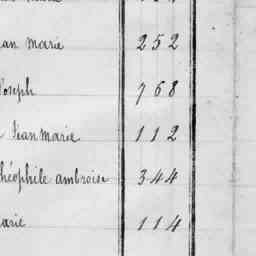 an marie 252
Joseph 768
Jean marie 112
héophile ambroise 344
arie 114